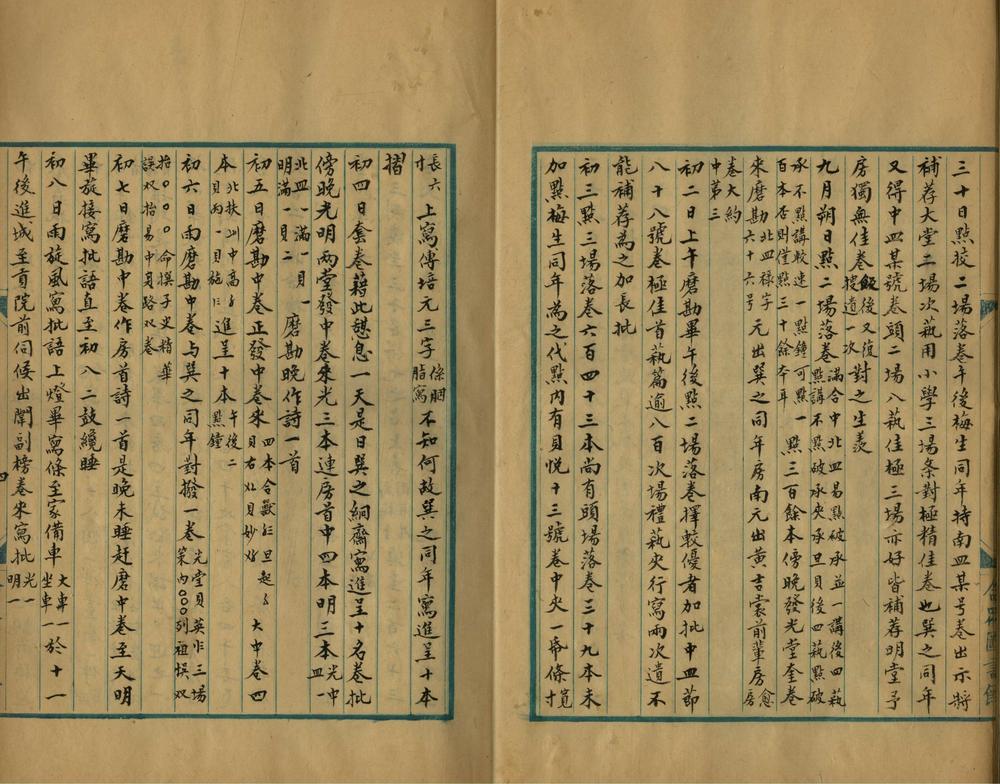 三十日點校二場落卷午後梅生同年持南皿某号卷出示將
補荐大堂二場次藝用小學三場条對極精佳卷也巽之同年
又得中皿某號卷頭二場八藝佳極三場亦好皆補荐明堂予
房獨無佳卷飯後又復對之生羨
援道一次
九月朔日點二場落卷滿合中北皿易點破承並一講後四藝
點講不點破承夾承旦貝後四藝點破
承不點講較速一點鐘可點一點三百餘本傍晚發光堂奎卷
百本否則僅點三十餘本耳
來磨勘北皿禄字元出巽之同年房南元出黃吉裳前輩房愈
六十六号房
卷大約
中第三
初二日上午磨勘畢午後點二場落卷擇較優者加批中皿節
八十八號卷極佳首藝篇逾八百次場禮藝夾行寫兩次遺不
能補荐為之加長批
初三點三場落卷六百四十三本尚有頭場落卷三十九本未
加點梅生同年為之代點內有貝悦十三號卷中夾一昏條寬
寸
長六上寫傅培元三字條胭不知何故巽之同年寫進呈十本
寸脂寫
摺
初四日套卷藉此憩息一天是日巽之絅齋寫進呈十名卷批
傍晚光明兩堂發中卷來光三本連房首中四本明三本光中
皿一
北皿一滿一貝一磨勘晚作詩一首
明滿一貝二
初五日磨勘中卷正發中卷來四本合歙旦起大中卷四
貝右貝妙
本北扶中高進呈十本午後二
貝丙一貝施點鐘
初六日雨磨勘中卷与巽之同年對撥一卷光堂貝英三場
策內○○○列祖悞双
抬○○○命撰子史精華
誤双抬易中貝路双卷
初七日磨勘中卷作房首詩一首是晚未睡赶磨中卷至天明
畢旋接寫批語直至初八二鼓纔睡
初八日雨旋風寫批語上燈畢寫條至家備車大車一於十一
坐車一
午後進城至貢院前伺候出闈副榜卷來寫批光一
明一
四